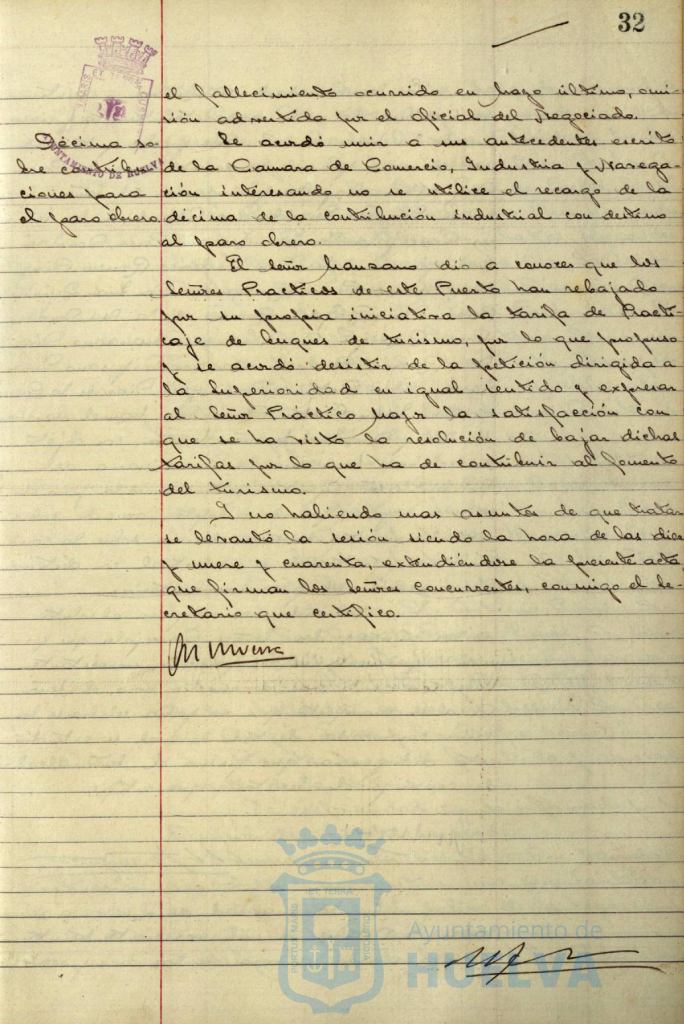 32
el fallecimiento ocurrido en Mayo último, omi-
sión advertida por el oficial del Negociado.
Décima so-
bre contribu-
ciones para
el paro obrero.
Se acordó unir a sus antecedentes escrito
de la Camara de Comercio, Industria y Navega-
ción interesando no se utilice el recargo de la
décima de la contribución industrial con destino
al paro obrero.
El Señor Manzano dió a conocer que los
Señores Practicos de este Puerto han rebajado
por su propia iniciativa la tarifa de Practi-
caje de buques de turismo, por lo que propuso
y se acordó desistir de la petición dirigida a
la Superioridad en igual sentido y expresar
al Señor Práctico Mayor la satisfacción con
que se ha visto la resolución de bajar dichas
tarifas por lo que ha de contribuir al fomento
del turismo.
Y no habiendo mas asuntos de que tratar
se levantó la sesión siendo la hora de las diez
y nueve y cuarenta, extendiéndose la presente acta,
que firman los Señores concurrentes, conmigo el Se-
cretario que certifico.
AYUNTAMIENTO DE HUELVA
Ayuntamiento de
HUELVA